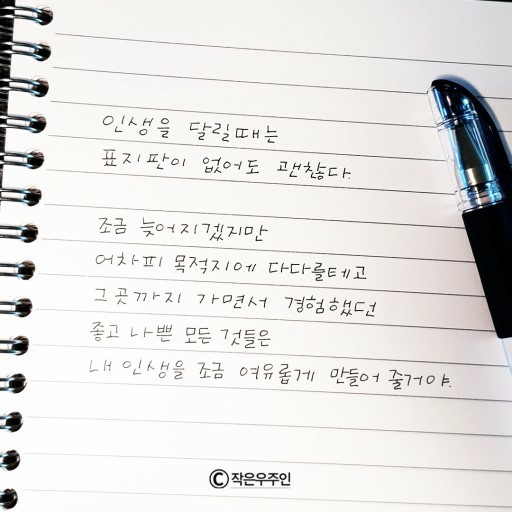 인생을 달릴때는
표지판이 없어도 괜찮다.
조금 늦어지겠지만
어차피 목적지에 다다를테고
그곳까지 가면서 경험했던
좋고 나쁜 모든 것들은
내 인생을 조금 여유롭게 만들어 줄거야.
©작은우주인